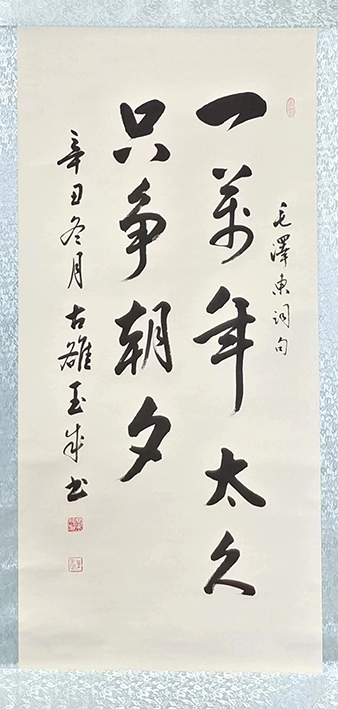 毛澤東詞句
一萬年太久
只争朝夕
辛丑冬月古雄玉成书